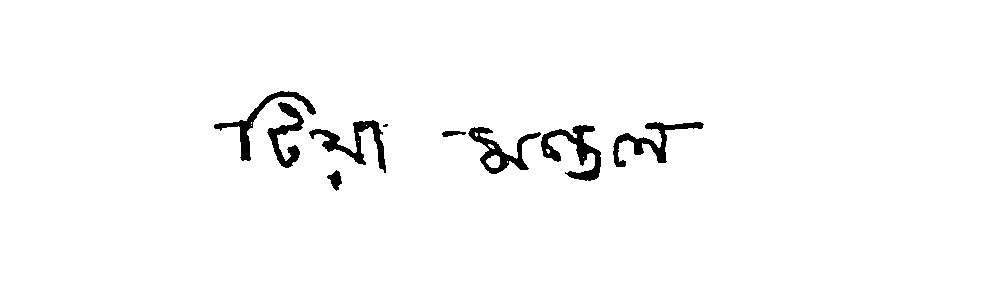 টিয়া মন্ডল